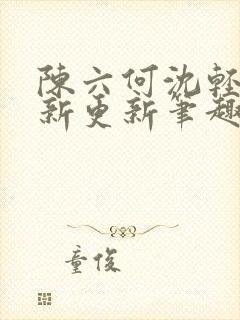 陳六何沈輕
新更新筆趣
童俊